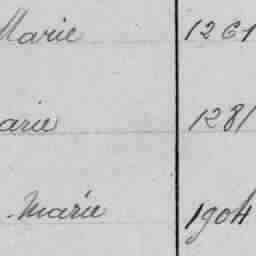 Marie 1261
arie 1281
Marie 1904